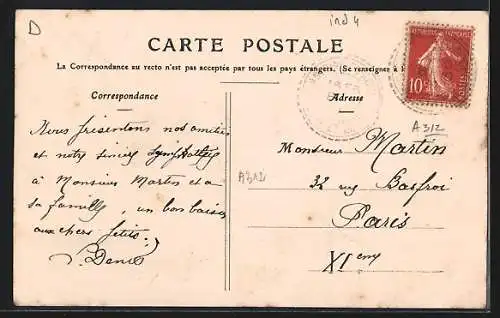 D
ind 4
CARTE POSTALE
La Correspondance au recto n'est pas acceptée par tous les pays étrangers. (Se renseigner à l
Correspondance
Adresse
REPUBLIQUE FRANÇAISE
10c
POSTES
A312
A312
Nous présentons nos amitiés
et notre sincère sympathie
à Monsieur Martin et a
sa famille, un bon baiser
aux chers petits.
Denis
Monsieur Martin
32 rue Basfroi
Paris
XIeme